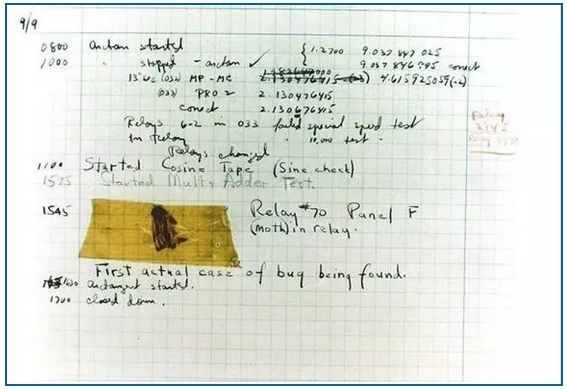 9/9
0800 antan started { 1.2700 9.037 847 025
1000 " stopped - antan ✓ 9.037 846 995 correct
13"uc (032) MP-MC 2.130476415 (-3) 4.615925059(-2)
(033) PRO 2 2.130476415
correct 2.130676415
Relays 6-2 in 033 failed special speed test
In Relay " 10.000 test.
Relay
2145
Relays changed
1100 Started Cosine Tape (Sine check)
1525 Started Mult+Adder Test.
1545 Relay #70 Panel F
(moth) in relay.
First actual case of bug being found.
1630 antangent started.
1700 closed down.